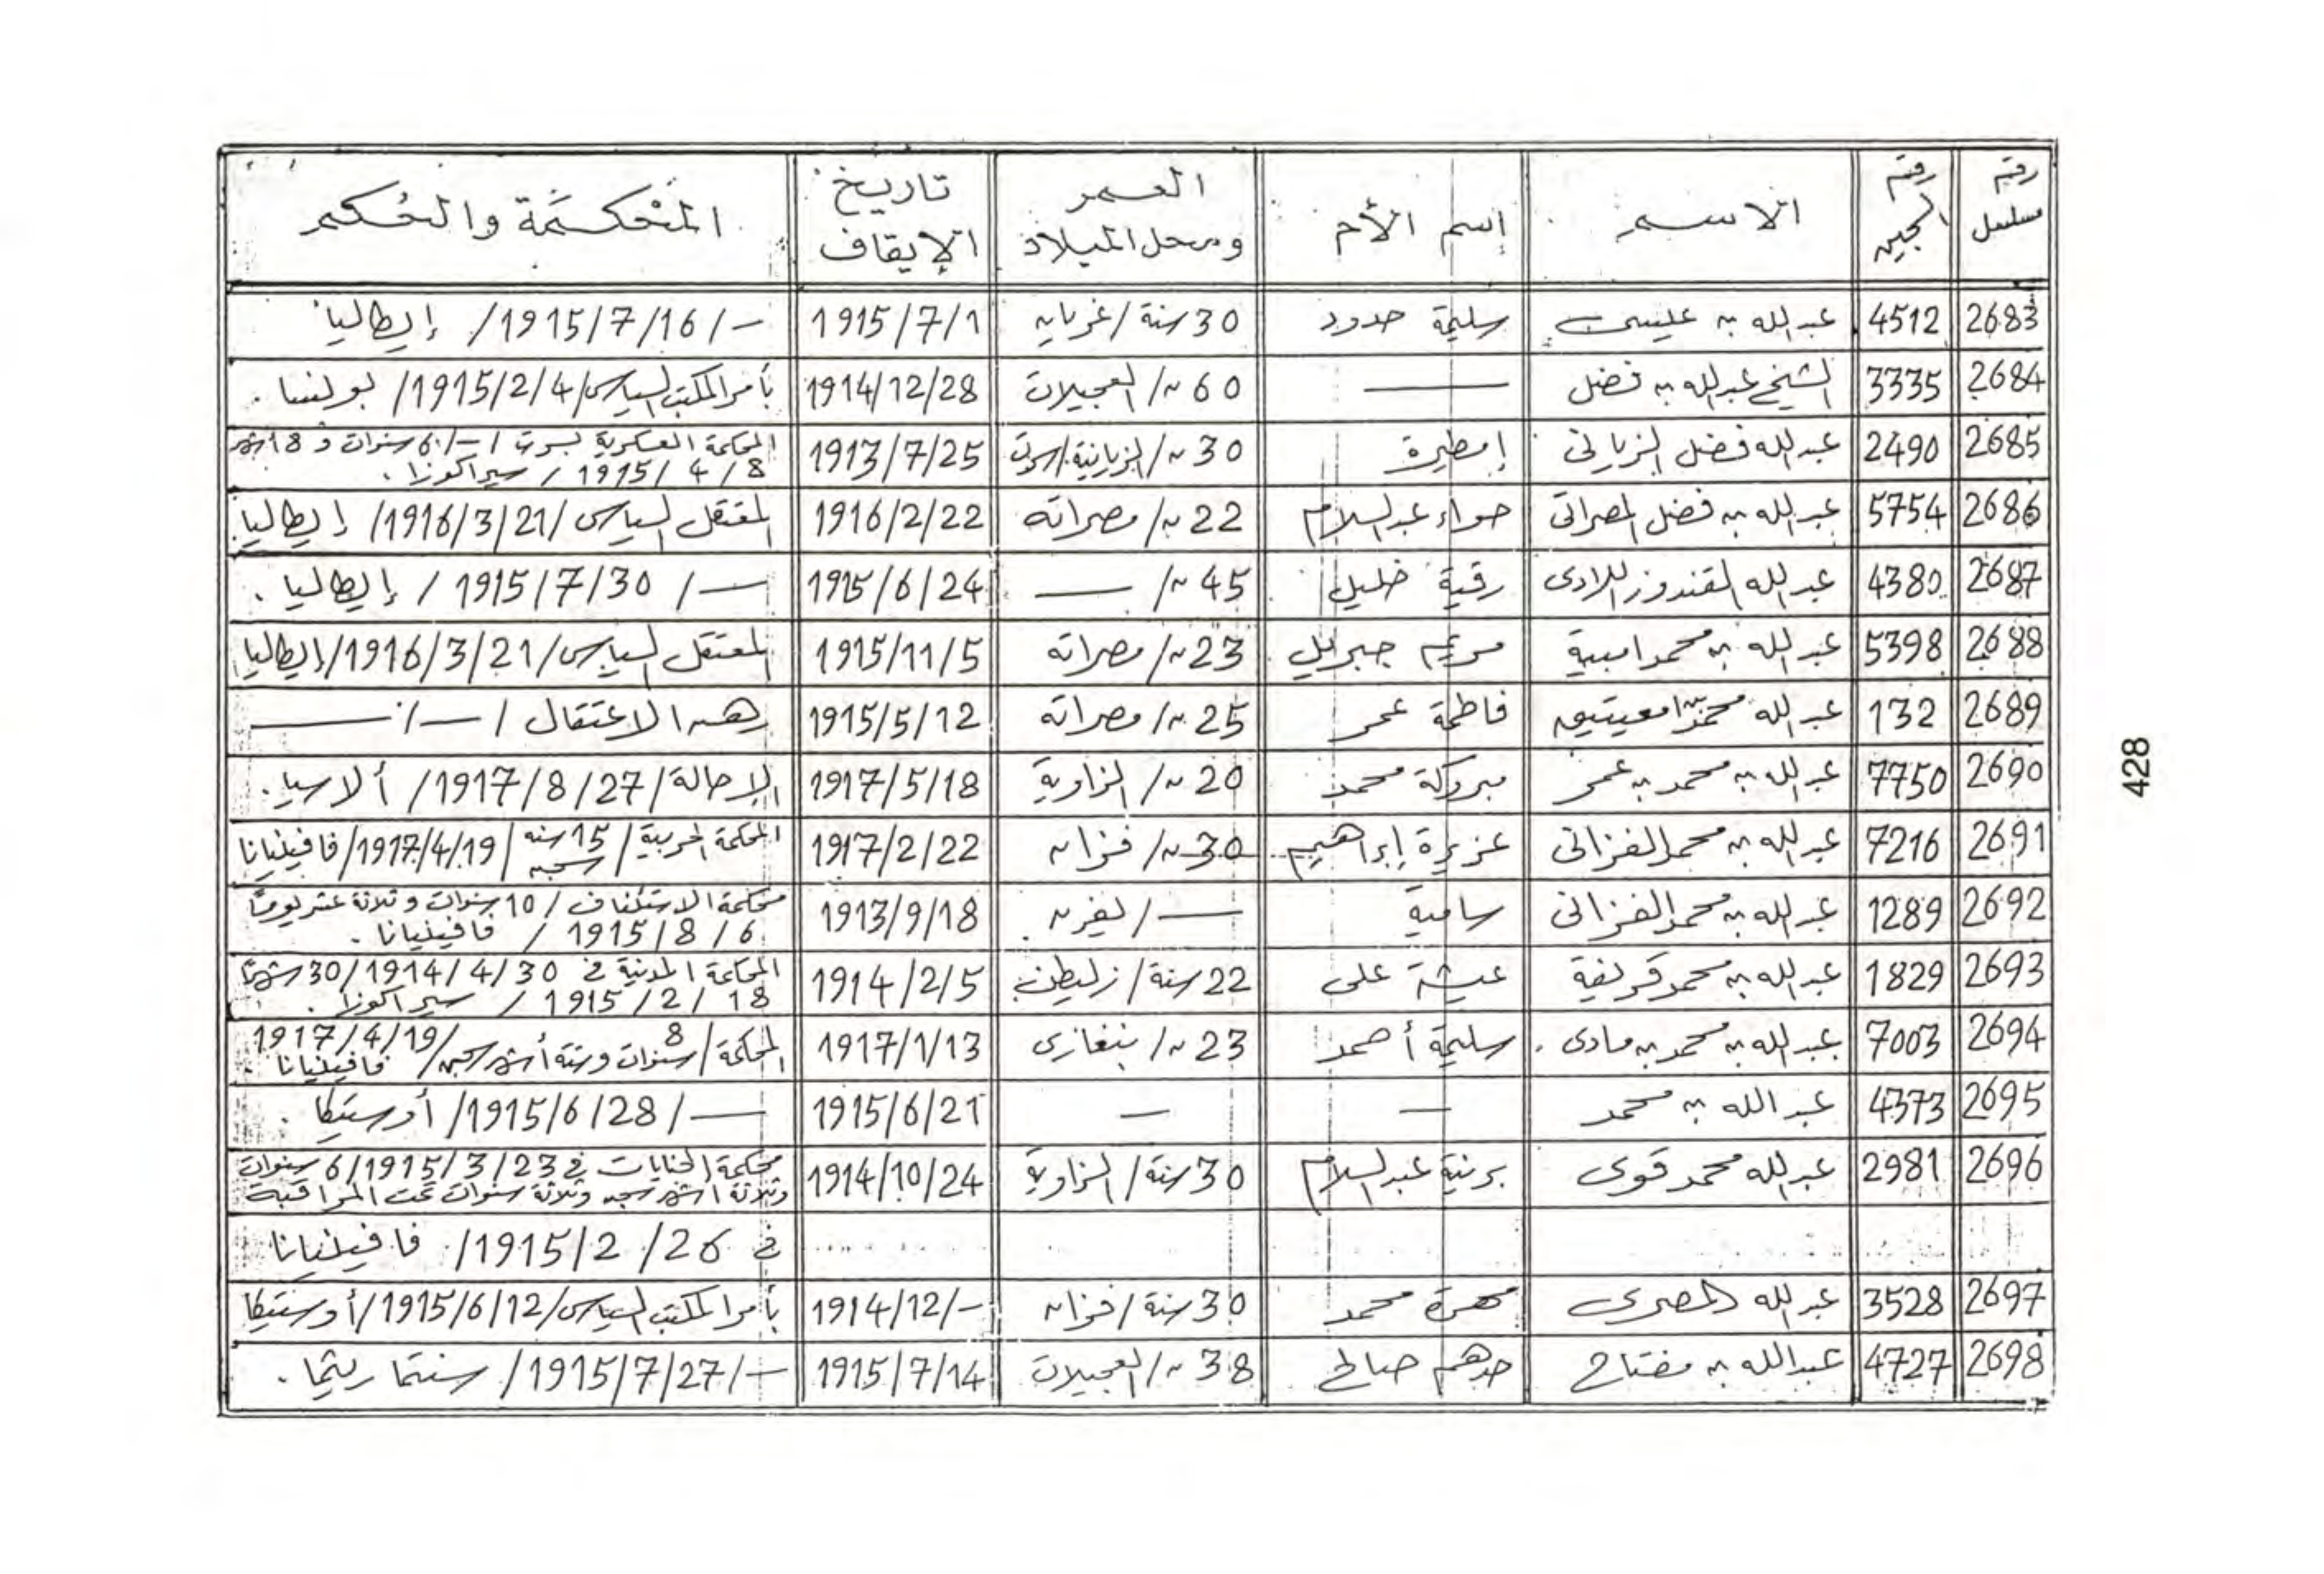 رقم مسلسل | رقم السجين | الاسم | إسم الأم | العمر ومحل الميلاد | تاريخ الإيقاف | المحكمة والحكم
2683 | 4512 | عبدالله بن عيسى | سليمة حدود | 30 سنة / غريان | 1915/7/1 | — / 1915/7/16 / إيطاليا
2684 | 3335 | الشيخ عبدالله بن فضل | — | 60 // / العجيلات | 1914/12/28 | بأمر المكتب السياسى / 1915/2/4 / بولنسا .
2685 | 2490 | عبدالله فضل الزيانى | إمطيرة | 30 // / الزيانية / سرت | 1913/7/25 | المحكمة العسكرية بسرت / — / 6 سنوات و 8 أشهر
1915/4/8 / سيراكوزا .
2686 | 5754 | عبدالله بن فضل المصراتى | حواء عبدالسلام | 22 // / مصراته | 1916/2/22 | المعتقل السياسى / 1916/3/21 / إيطاليا
2687 | 4380 | عبدالله القندوز اللادى | رقية خليل | 45 // / — | 1915/6/24 | — / 1915/7/30 / إيطاليا .
2688 | 5398 | عبدالله بن محمد امبية | مريم جبريل | 23 // / مصراته | 1915/11/5 | المعتقل السياسى / 1916/3/21 / إيطاليا
2689 | 132 | عبدالله محمد بن امعيتيق | فاطمة عمر | 25 // / مصراته | 1915/5/12 | رهن الاعتقال / — / —
2690 | 7750 | عبدالله بن محمد بن عمر | مبروكة محمد | 20 // / الزاوية | 1917/5/18 | الإحالة / 1917/8/27 / ألاسيا .
2691 | 7216 | عبدالله بن محمد الفزانى | عزيزة إبراهيم | 30 // / فزان | 1917/2/22 | المحكمة الحربية / 15 سنه سجن / 1917/4/19 / فافينيانا
2692 | 1289 | عبدالله بن محمد الفزانى | سامية | — / لغرن | 1913/9/18 | محكمة الاستئناف / 10 سنوات وثلاثة عشر يوماً
1915/8/6 / فافينيانا .
2693 | 1829 | عبدالله بن محمد قريفة | عيشة على | 22 سنة / زليطن | 1914/2/5 | المحكمة المدنية فى 1914/4/30 / 30 شهراً
1915/2/18 / سيراكوزا .
2694 | 7003 | عبدالله بن محمد بن مادى | سليمة أحمد | 23 // / بنغازى | 1917/1/13 | المحكمة / 8 سنوات وستة أشهر سجن / 1917/4/19 / فافينيانا .
2695 | 4373 | عبدالله بن محمد | — | — | 1915/6/21 | — / 1915/6/28 / أوستيكا .
2696 | 2981 | عبدالله محمد قوى | برنية عبدالسلام | 30 سنة / الزاوية | 1914/10/24 | محكمة الجنايات فى 1915/3/23 / 6 سنوات
وثلاثة أشهر سجن وثلاثة سنوات تحت المراقبة
فى 1915/2/26 / فافينيانا
2697 | 3528 | عبدالله المصرى | مهرة محمد | 30 سنة / فزان | 1914/12/- | بأمر المكتب السياسى / 1915/6/12 / أوستيكا
2698 | 4727 | عبدالله بن مفتاح | حدهم صالح | 38 // / العجيلات | 1915/7/14 | — / 1915/7/27 / سنتا ريثما .
428